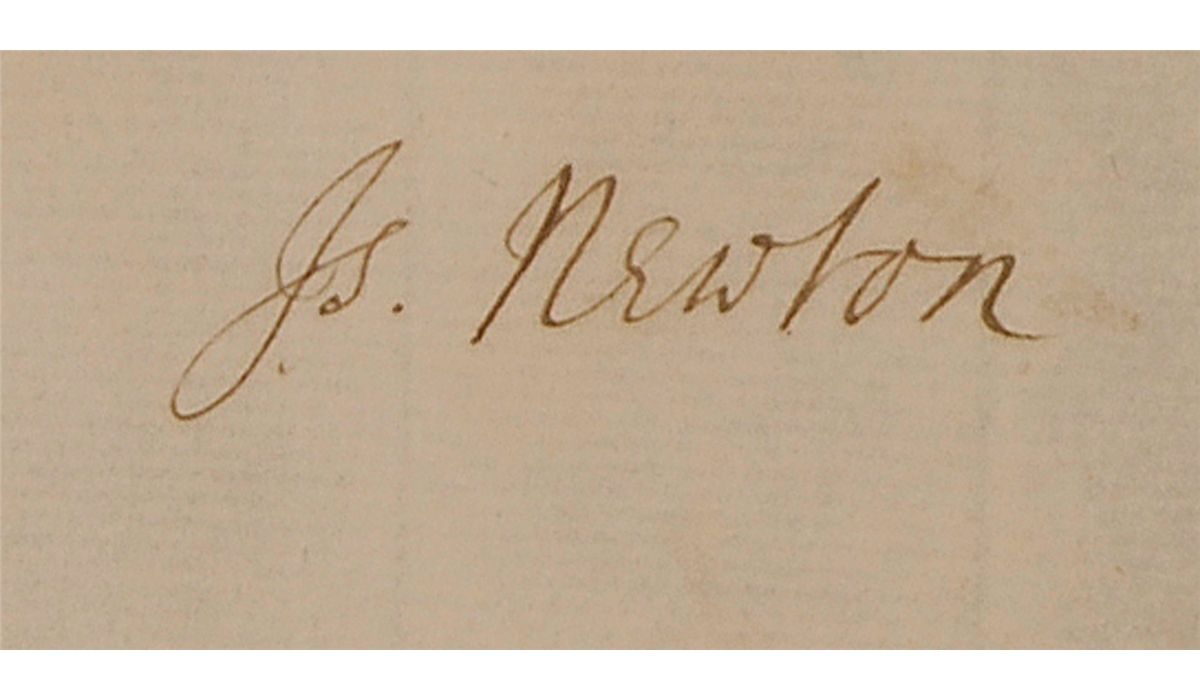 Is. Newton